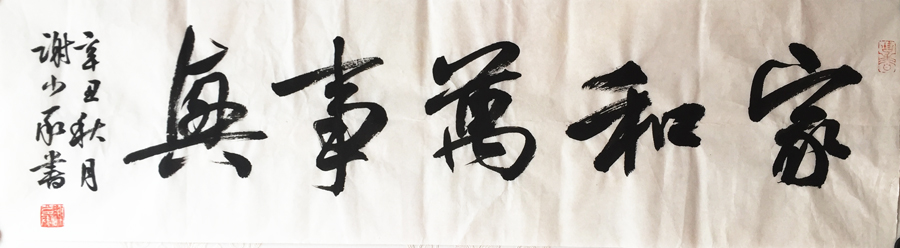 家和萬事興
辛丑秋月
謝少承書